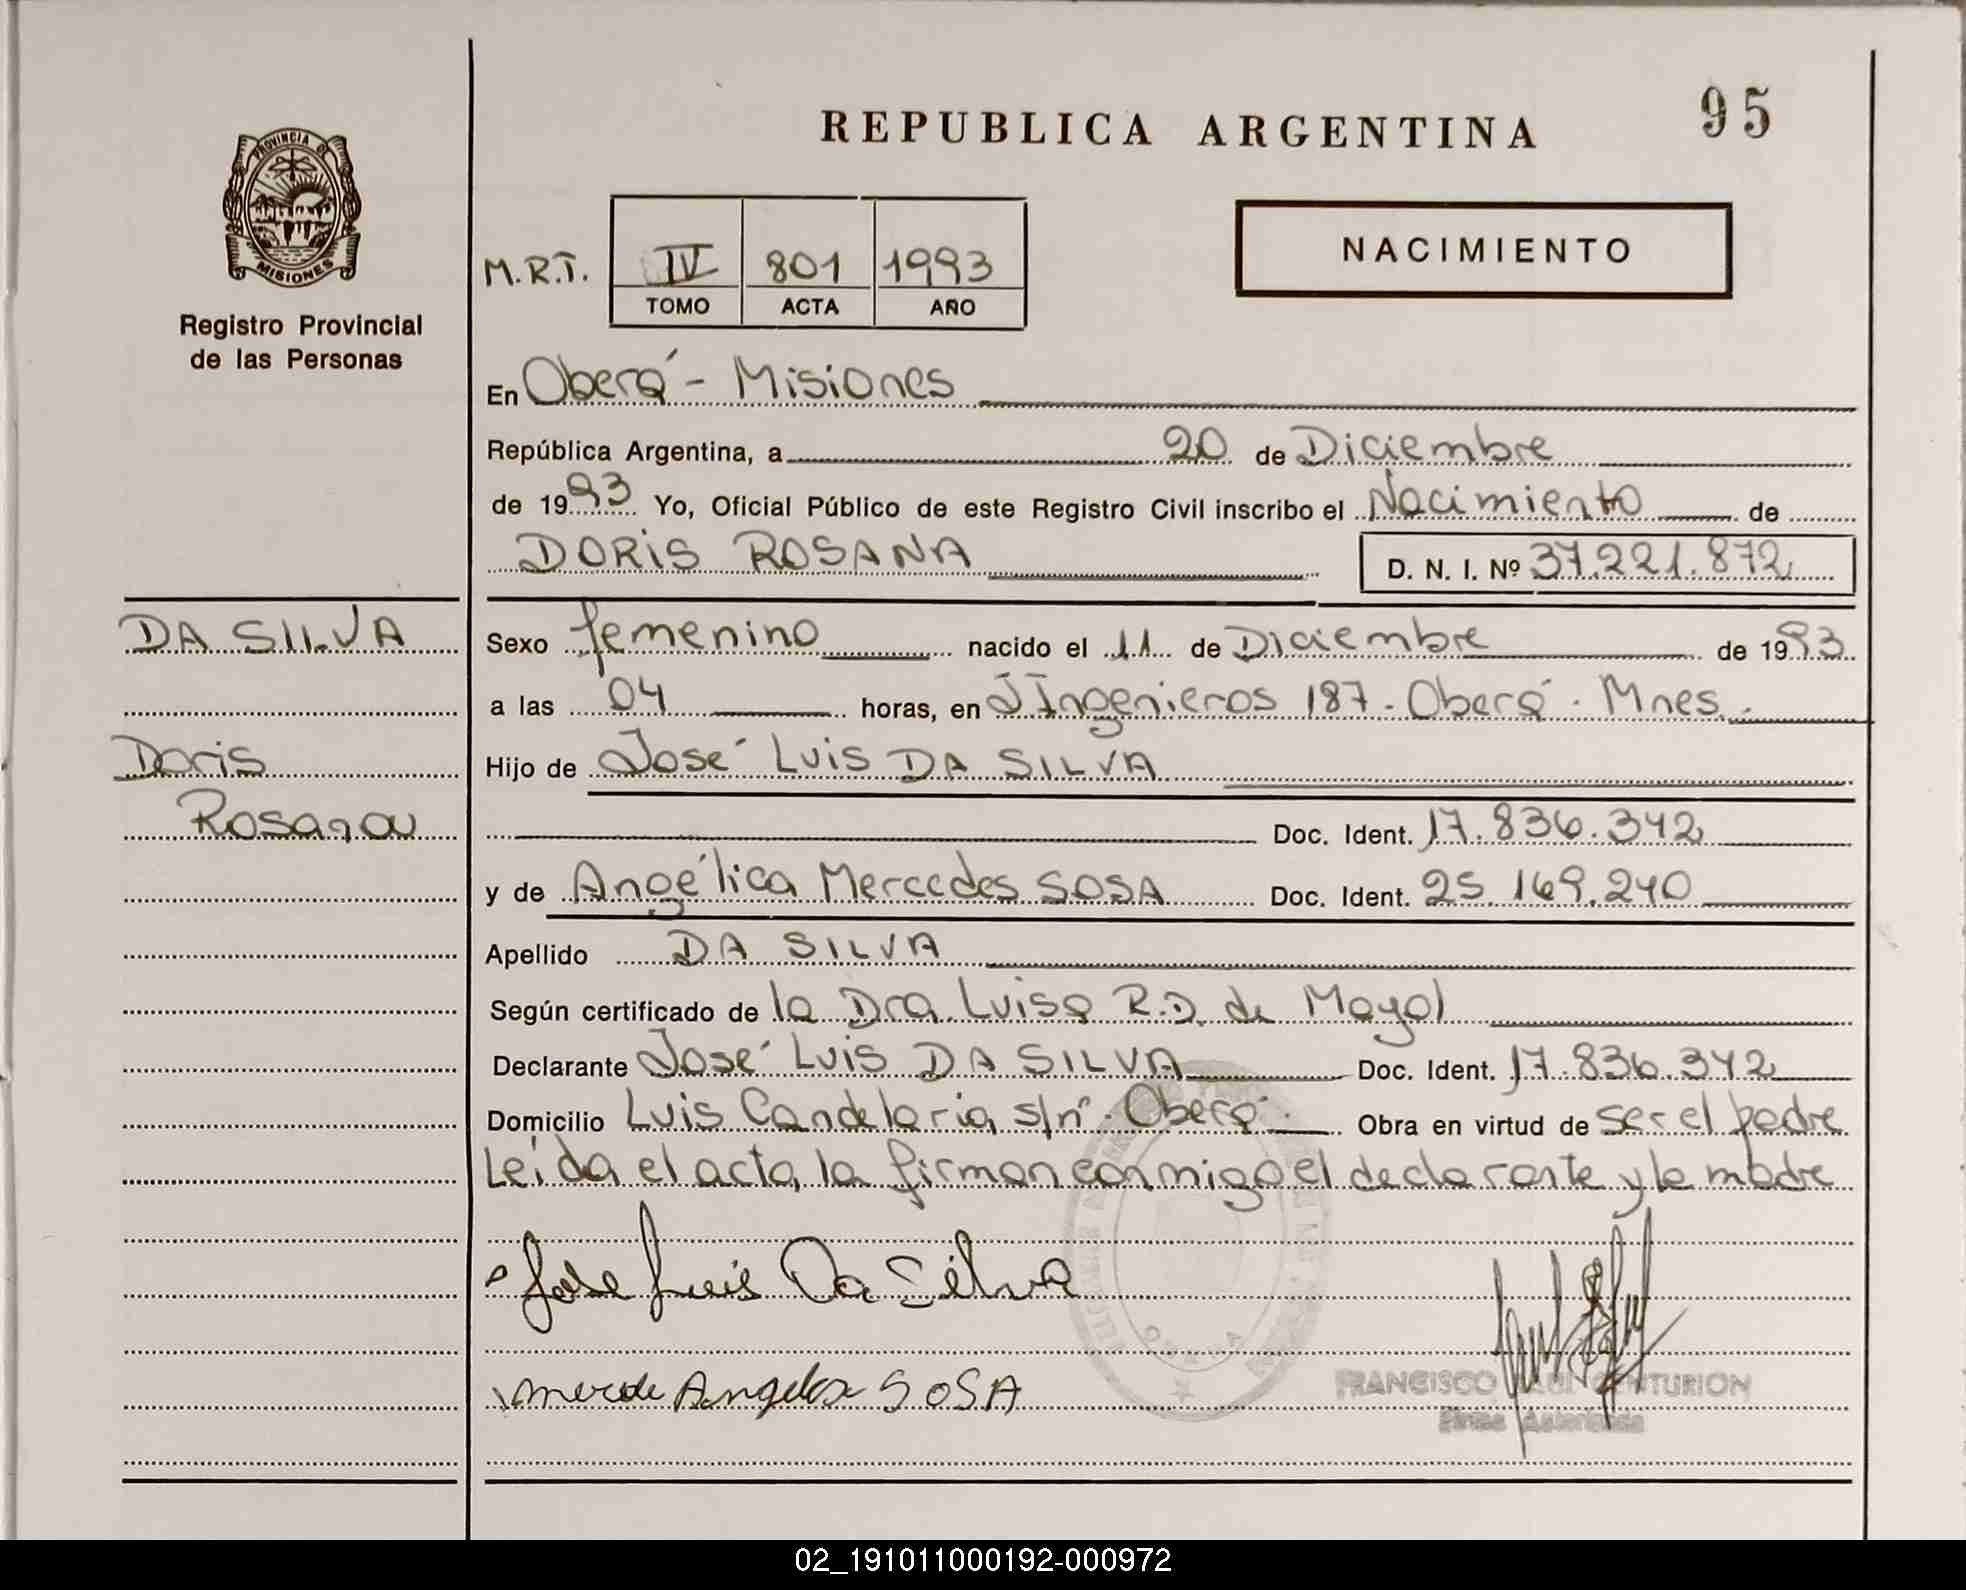 REPUBLICA ARGENTINA
95
PROVINCIA DE
MISIONES
Registro Provincial
de las Personas
M.R.T. IV 801 1993
TOMO ACTA AÑO
NACIMIENTO
En Oberá - Misiones
República Argentina, a 20 de Diciembre
de 1993 Yo, Oficial Público de este Registro Civil inscribo el Nacimiento de
DORIS ROSANA D. N. I. Nº 37.221.872
DA SILVA
Doris
Rosana
Sexo femenino nacido el 11 de Diciembre de 1993
a las 04 horas, en J Ingenieros 187 - Oberá - Mnes.
Hijo de José Luis DA SILVA
Doc. Ident. 17.836.342
y de Angélica Mercedes SOSA Doc. Ident. 25.169.240
Apellido DA SILVA
Según certificado de la Dra. Luisa R.D. de Mayol
Declarante José Luis DA SILVA Doc. Ident. 17.836.342
Domicilio Luis Candelaria s/nº - Oberá - Obra en virtud de ser el padre
Leída el acta, la firman conmigo el declarante y la madre
Jose Luis Da Silva
Angelica SOSA
FRANCISCO CENTURION
Firma Autorizada
OBERA
02_191011000192-000972